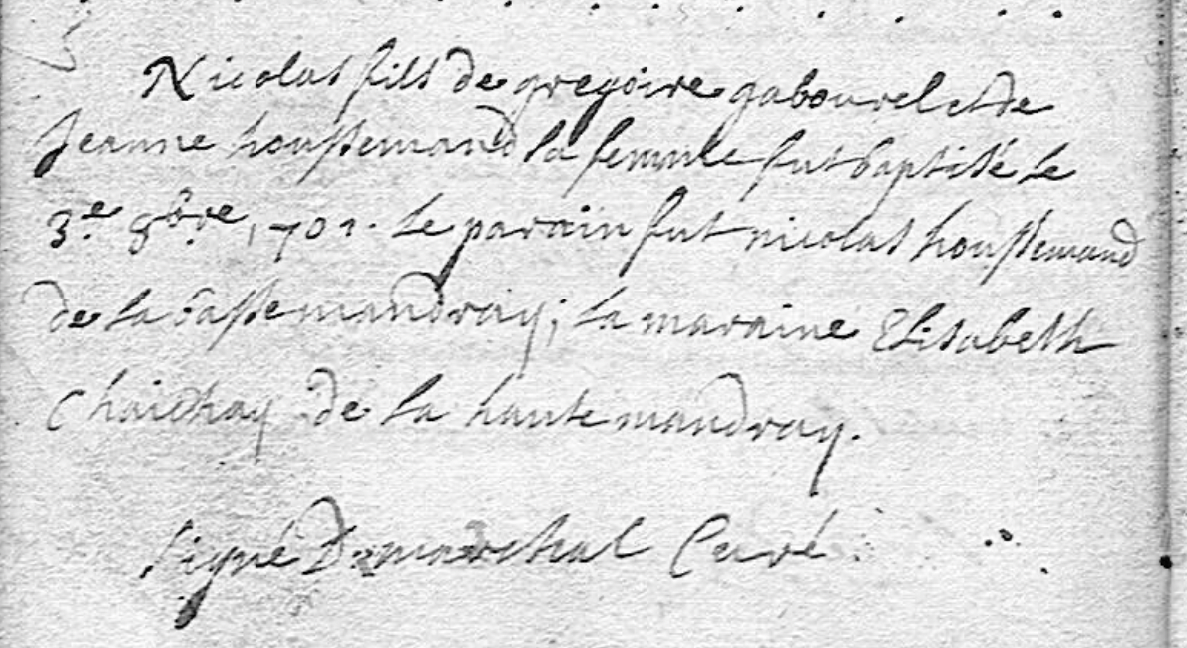 Nicolas fils de gregoire gabourel et de
Jeanne houssemand sa femme fut baptisé le
3.e 8bre 1701. le parain fut nicolas houssemand
de la basse mandray; la maraine Elisabeth
Chaichay de la haute mandray.
signé Demarechal Curé